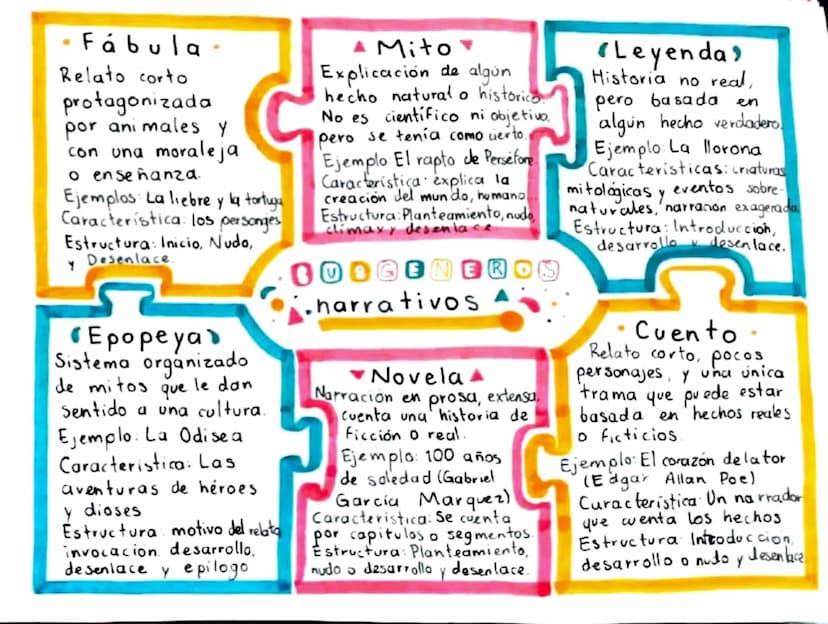 Fábula
Relato corto
protagonizada
por animales y
con una moraleja
o enseñanza.
Ejemplos: La liebre y la tortuga
Característica: los personjes
Estructura: Inicio, Nudo,
y Desenlace.
Mito
Explicación de algún
hecho natural o histórico.
No es científico ni objetivo,
pero se tenía como cierto.
Ejemplo: El rapto de Perséfone.
Característica: explica la
creación del mundo, humano...
Estructura: Planteamiento, nudo,
clímax y desenlace.
Leyenda
Historia no real,
pero basada en
algún hecho verdadero.
Ejemplo: La llorona
Características: criaturas
mitológicas y eventos sobre-
naturales, narración exagerada
Estructura: Introducción,
desarrollo y desenlace.
SUBGENEROS
narrativos
Epopeya
Sistema organizado
de mitos que le dan
sentido a una cultura.
Ejemplo: La Odisea
Característica: Las
aventuras de héroes
y dioses
Estructura: motivo del relato
invocación. desarrollo,
desenlace y epílogo
Novela
Narración en prosa, extensa,
cuenta una historia de
ficción o real.
Ejemplo: 100 años
de soledad (Gabriel
García Marquez)
Característica: Se cuenta
por capítulos o segmentos.
Estructura: Planteamiento,
nudo o desarrollo y desenlace.
Cuento
Relato corto, pocos
personajes, y una única
trama que puede estar
basada en hechos reales
o ficticios.
Ejemplo: El corazón delator
(Edgar Allan Poe)
Característica: Un narrador
que cuenta los hechos
Estructura: Introducción,
desarrollo o nudo y desenlace.